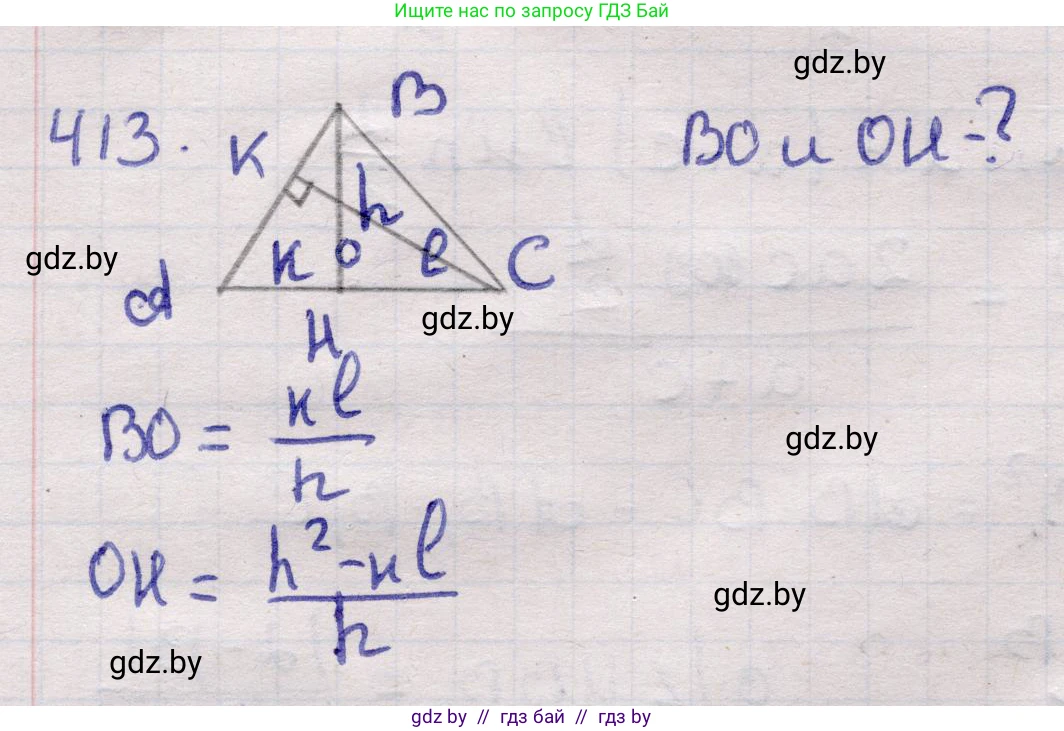 Ищите нас по запросу ГДЗ Бай
gdz.by
413.
K
B
BO и OH -?
h
gdz.by
к
O
l
C
A
gdz.by
H
BO = кl/h
gdz.by
OH = h²-кl/h
gdz.by
gdz.by
gdz by // гдз бай // гдз by